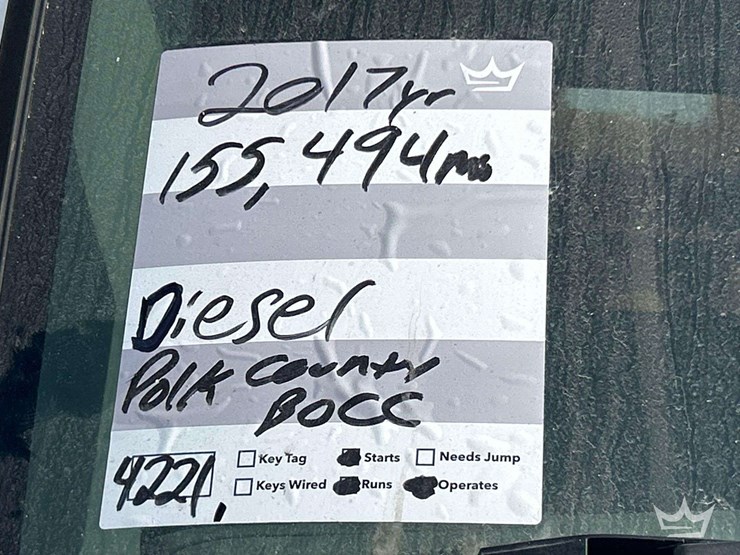 2017yr
155,494 mis
Diesel
Polk County
BOCC
4221,
Key Tag Starts Needs Jump
Keys Wired Runs Operates